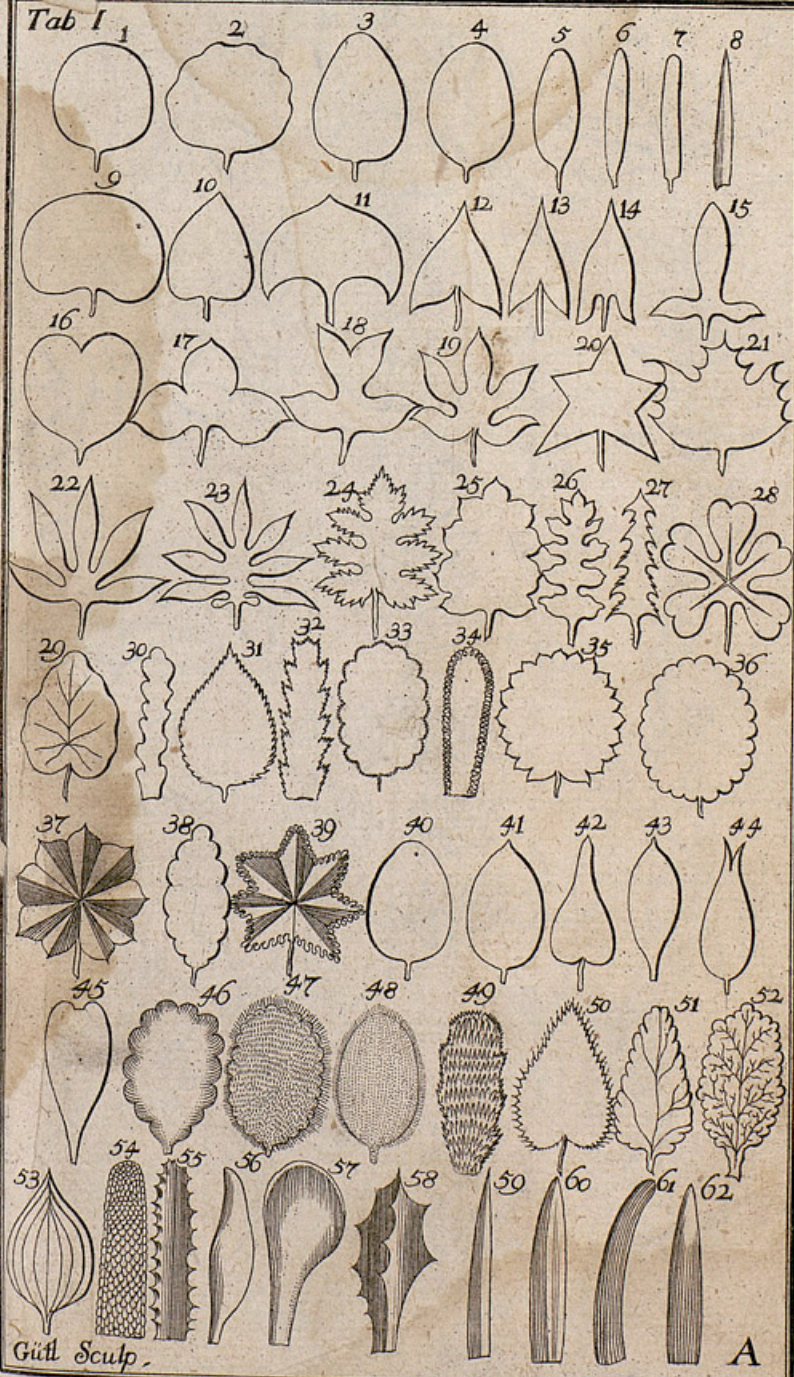 Tab I
1 2 3 4 5 6 7 8
9 10 11 12 13 14 15
16 17 18 19 20 21
22 23 24 25 26 27 28
29 30 31 32 33 34 35 36
37 38 39 40 41 42 43 44
45 46 47 48 49 50 51 52
53 54 55 56 57 58 59 60 61 62
Gütl Sculp. A